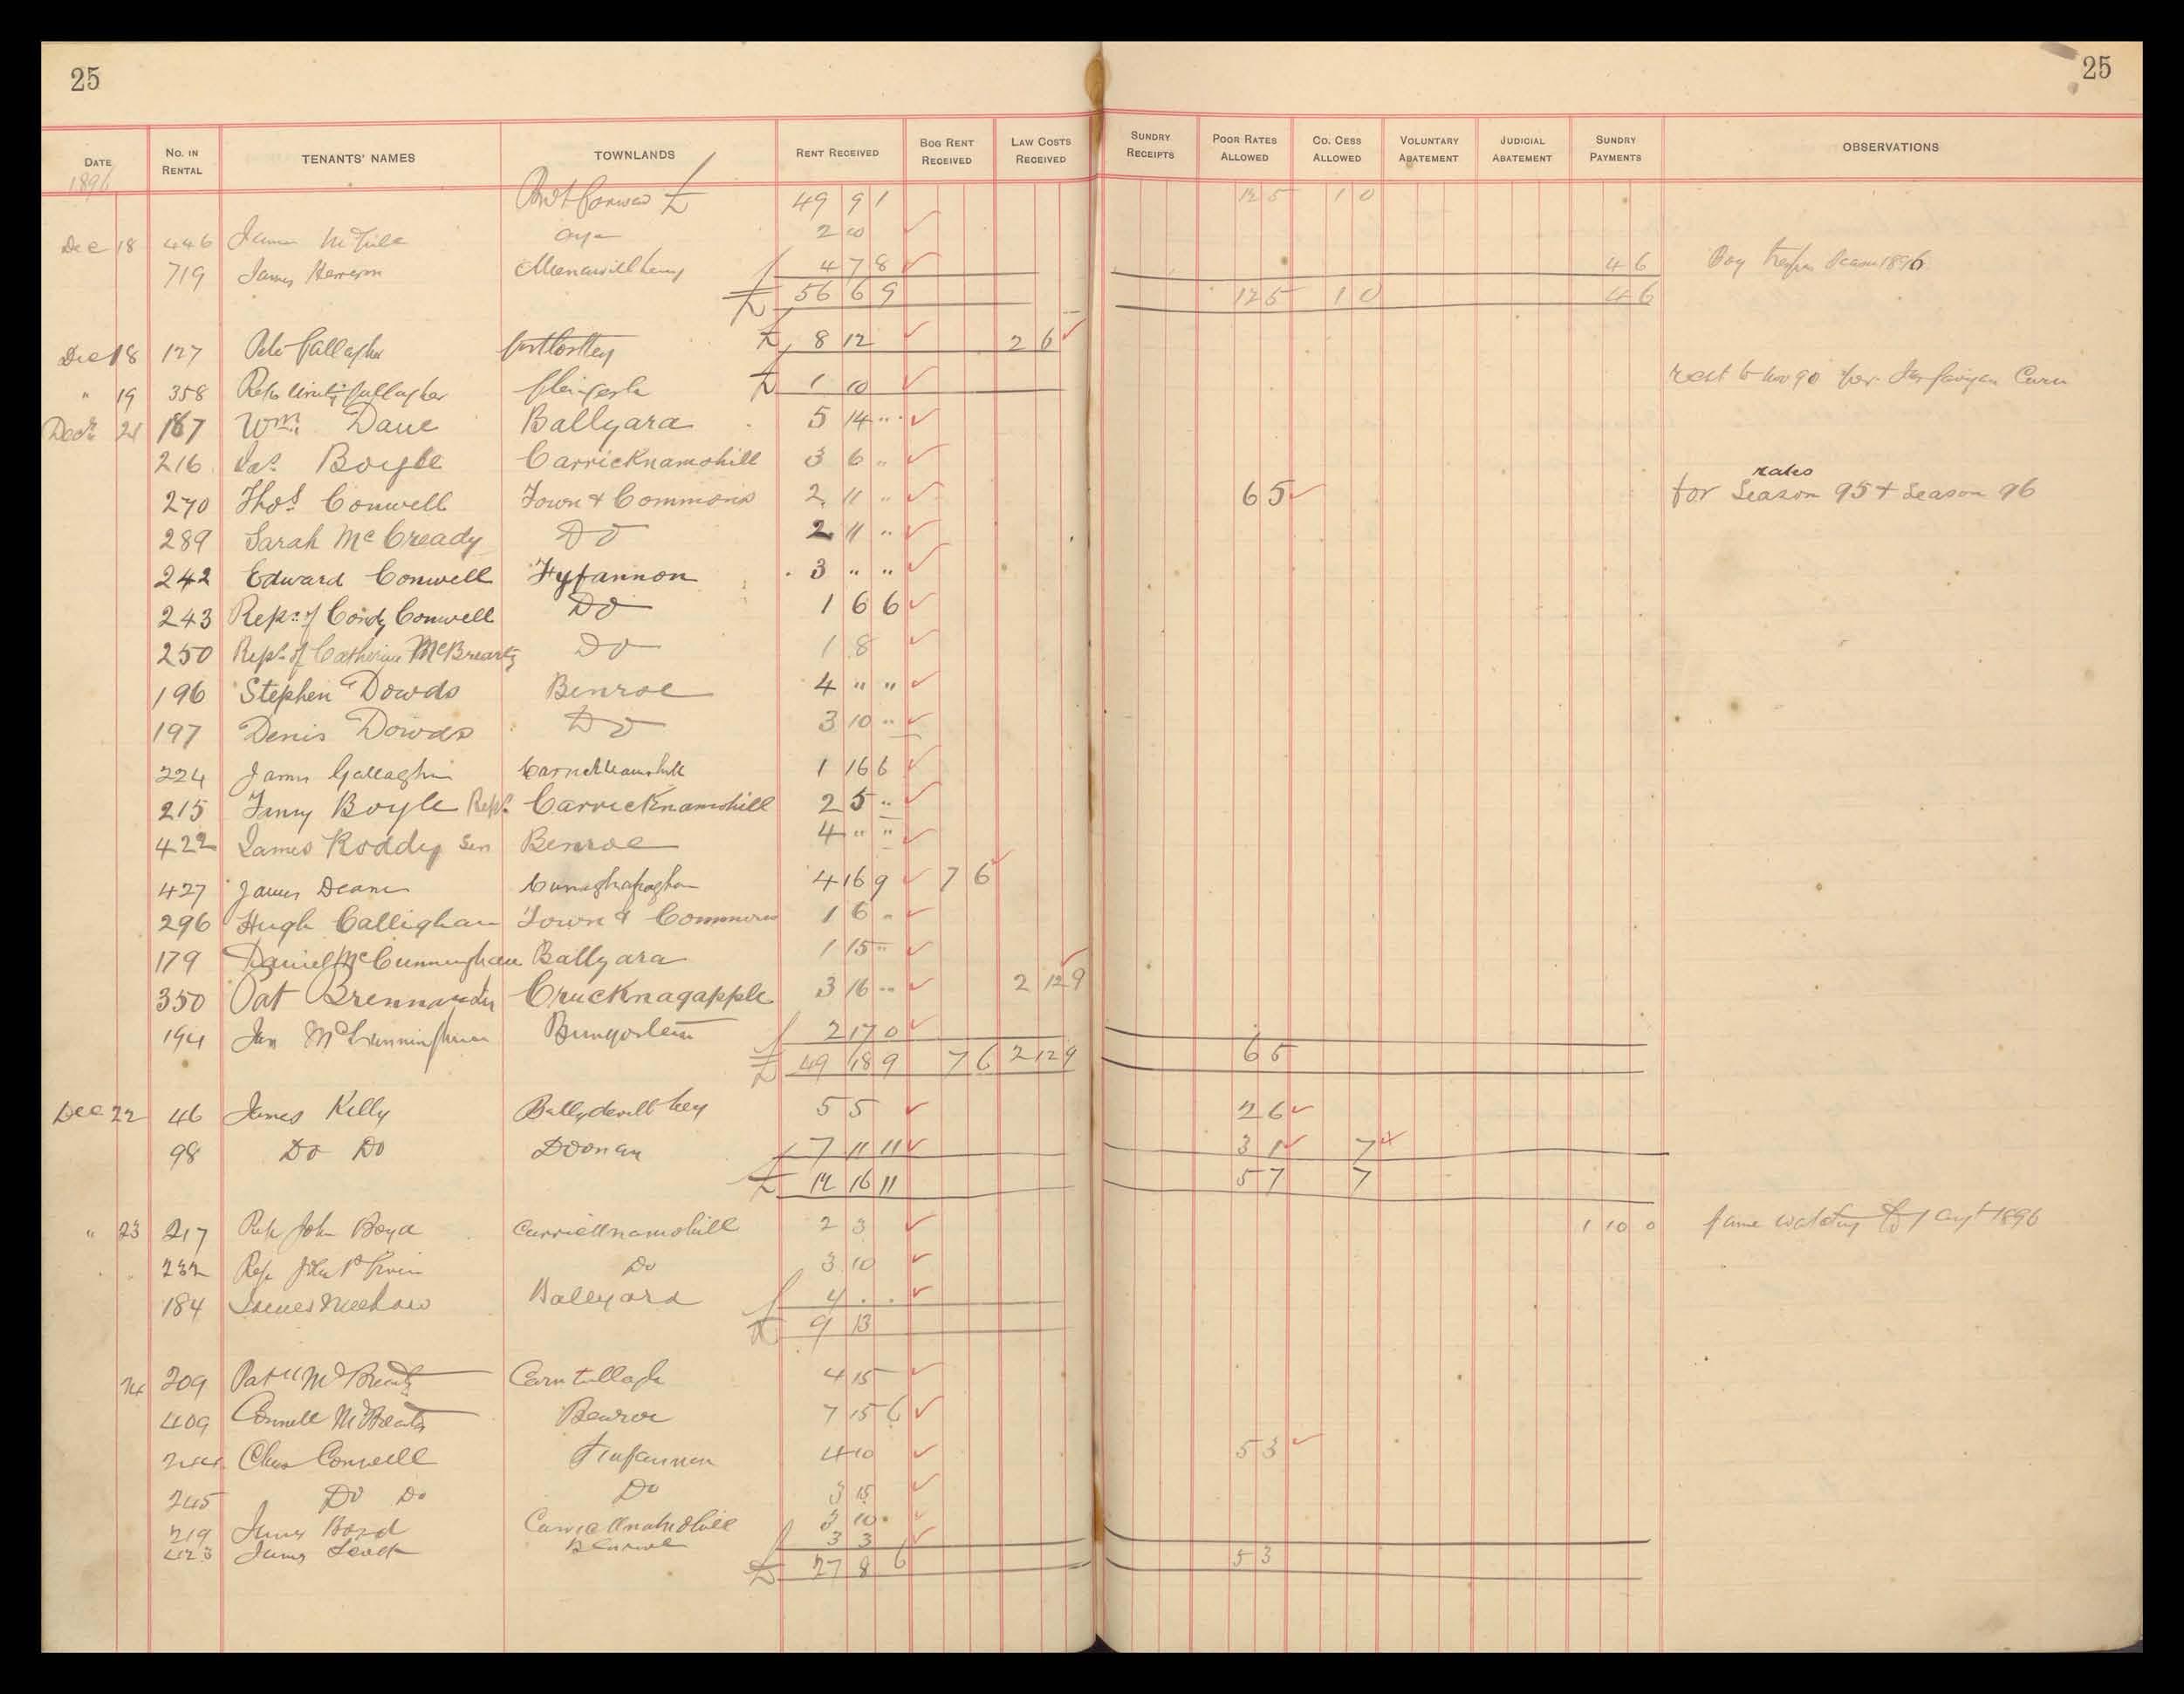 25 25
DATE NO. IN RENTAL TENANTS' NAMES TOWNLANDS RENT RECEIVED BOG RENT RECEIVED LAW COSTS RECEIVED SUNDRY RECEIPTS POOR RATES ALLOWED CO. CESS ALLOWED VOLUNTARY ABATEMENT JUDICIAL ABATEMENT SUNDRY PAYMENTS OBSERVATIONS
1896
forward £ 49 9 1 12 5 1 0
Dec 18 446 James 2 10
719 James 4 7 8 4 6 Season 1896
£ 56 6 9 12 5 1 0 4 6
Dec 18 127 Gallagher £ 8 12 2 6
" 19 358 Gallagher £ 1 10 rent to Nov 90 per
Decr 21 187 Wm. Dane Ballyara 5 14 "
216 Jas. Boyle Carricknamohill 3 6 "
270 Thos. Conwell Town & Commons 2 11 " 6 5 for rates Season 95 + Season 96
289 Sarah McCready Do 2 11 "
242 Edward Conwell Fyfannon 3 " "
243 Reps. of Condy Conwell Do 1 6 6
250 Reps. of Catherine McBrearty Do 1 8
196 Stephen Dowds Benroe 4 " "
197 Denis Dowds Do 3 10 "
224 James Gallagher 1 16 6
215 Fanny Boyle Reps. Carricknamohill 2 5 "
422 James Roddy Sen Benroe 4 " "
427 James Deane 4 16 9 7 6
296 Hugh Callighan Town & Commons 1 6 "
179 Daniel McCunningham Ballyara 1 15 "
350 Pat Brennan Crucknagapple 3 16 " 2 12 9
194 Jas McCunningham 2 17 0
£ 49 18 9 7 6 2 12 9 6 5
Dec 22 46 James Kelly 5 5 2 6
98 Do Do Doonan 7 11 11 3 1 7
£ 12 16 11 5 7 7
" 23 217 Reps John Boyd Carricknamohill 2 3 1 10 0 1896
232 Rep Do 3 10
184 James Meehan Ballyara 4 . .
£ 9 13
24 209 Patk McBrearty Carntullagh 4 15
409 Connell McBrearty Benroe 7 15 6
244 Chas Conwell 4 10 5 3
245 Do Do Do 3 15
219 James Boyd Carricknamohill 3 10
423 James Benroe 3 3
£ 27 8 6 5 3